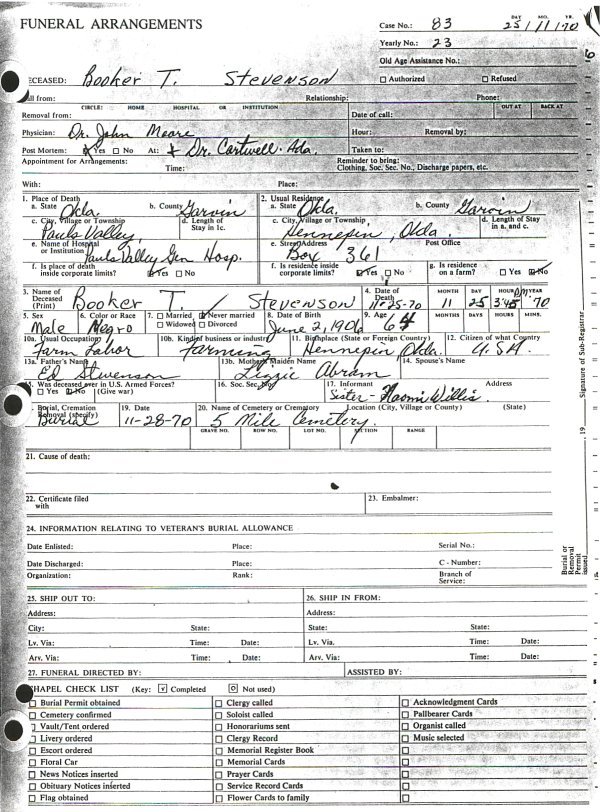 FUNERAL ARRANGEMENTS
DAY MO. YR.
Case No.: 83 25/11/70
Yearly No.: 23
Old Age Assistance No.:
DECEASED: Booker T. Stevenson
☐ Authorized ☐ Refused
Call from: Relationship: Phone:
CIRCLE: HOME HOSPITAL OR INSTITUTION OUT AT BACK AT
Removal from: Date of call:
Physician: Dr. John Moore Hour: Removal by:
Post Mortem: ☑ Yes ☐ No At: + Dr. Cartwell - Ada. Taken to:
Appointment for Arrangements: Time: Reminder to bring:
Clothing, Soc. Sec. No., Discharge papers, etc.
With: Place:
1. Place of Death 2. Usual Residence
a. State Okla. b. County Garvin a. State Okla. b. County Garvin
c. City, Village or Township Pauls Valley d. Length of Stay in 1c. c. City, Village or Township Hennepin, Okla. d. Length of Stay in a. and c.
e. Name of Hospital or Institution Pauls Valley Gen Hosp. e. Street Address Box 361 Post Office
f. Is place of death inside corporate limits? ☑ Yes ☐ No f. Is residence inside corporate limits? ☑ Yes ☐ No g. Is residence on a farm? ☐ Yes ☑ No
3. Name of Deceased (Print) Booker T. Stevenson 4. Date of Death 11-25-70 MONTH 11 DAY 25 HOUR 3:45 PM YEAR 70
5. Sex Male 6. Color or Race Negro 7. ☐ Married ☑ Never married ☐ Widowed ☐ Divorced 8. Date of Birth June 2, 1906 9. Age 64 MONTHS DAYS HOURS MINS.
10a. Usual Occupation Farm Labor 10b. Kind of business or industry Farming 11. Birthplace (State or Foreign Country) Hennepin Okla. 12. Citizen of what Country U.S.A.
13a. Father's Name Ed Stevenson 13b. Mother's Maiden Name Lizzie Abram 14. Spouse's Name
15. Was deceased ever in U.S. Armed Forces? ☐ Yes ☑ No (Give war) 16. Soc. Sec. No. 17. Informant Sister - Naomi Willis Address
18. Burial, Cremation Removal (specify) Burial 19. Date 11-28-70 20. Name of Cemetery or Crematory 5 Mile Cemetery. Location (City, Village or County) (State)
GRAVE NO. ROW NO. LOT NO. SECTION RANGE
21. Cause of death:
22. Certificate filed with 23. Embalmer:
24. INFORMATION RELATING TO VETERAN'S BURIAL ALLOWANCE
Date Enlisted: Place: Serial No.:
Date Discharged: Place: C - Number:
Organization: Rank: Branch of Service:
25. SHIP OUT TO: 26. SHIP IN FROM:
Address: Address:
City: State: State: State:
Lv. Via: Time: Date: Lv. Via. Time: Date:
Arv. Via: Time: Date: Arv. Via: Time: Date:
27. FUNERAL DIRECTED BY: ASSISTED BY:
CHAPEL CHECK LIST (Key: ☑ Completed ☐ Not used)
☐ Burial Permit obtained ☐ Clergy called ☐ Acknowledgment Cards
☐ Cemetery confirmed ☐ Soloist called ☐ Pallbearer Cards
☐ Vault/Tent ordered ☐ Honorariums sent ☐ Organist called
☐ Livery ordered ☐ Clergy Record ☐ Music selected
☐ Escort ordered ☐ Memorial Register Book ☐
☐ Floral Car ☐ Memorial Cards ☐
☐ News Notices inserted ☐ Prayer Cards ☐
☐ Obituary Notices inserted ☐ Service Record Cards ☐
☐ Flag obtained ☐ Flower Cards to family ☐
Burial or Removal Permit issued 19 Signature of Sub-Registrar